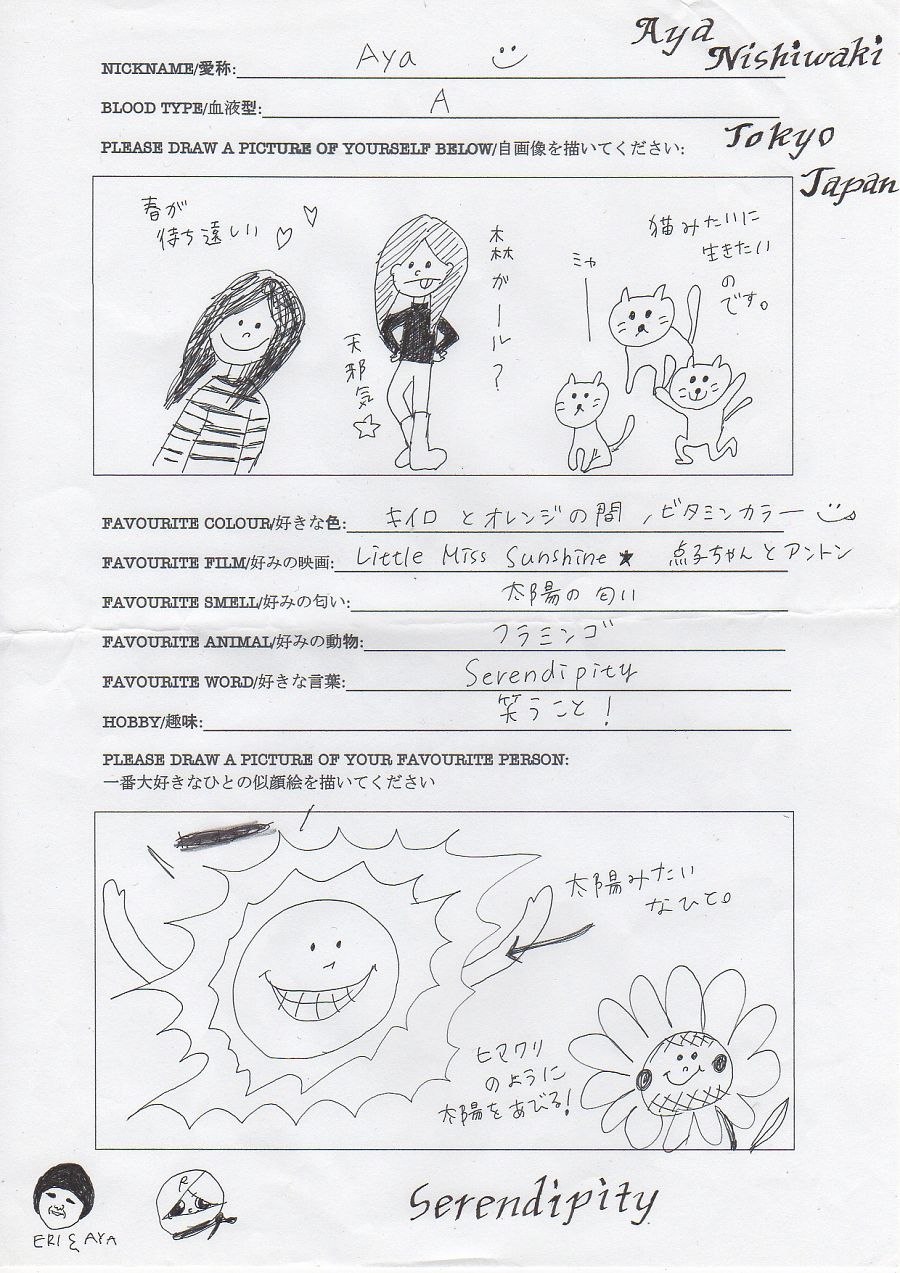 Aya
Nishiwaki
Tokyo
Japan
NICKNAME/愛称: Aya
BLOOD TYPE/血液型: A
PLEASE DRAW A PICTURE OF YOURSELF BELOW/自画像を描いてください:
春が
待ち遠しい
天邪気
森ガール?
ミャー
猫みたいに
生きたい
の
です。
FAVOURITE COLOUR/好きな色: キイロとオレンジの間、ビタミンカラー
FAVOURITE FILM/好みの映画: Little Miss Sunshine ★ 点子ちゃんとアントン
FAVOURITE SMELL/好みの匂い: 太陽の匂い
FAVOURITE ANIMAL/好みの動物: フラミンゴ
FAVOURITE WORD/好きな言葉: Serendipity
HOBBY/趣味: 笑うこと!
PLEASE DRAW A PICTURE OF YOUR FAVOURITE PERSON:
一番大好きなひとの似顔絵を描いてください
太陽みたい
なひと。
ヒマワリ
のように
太陽をあびる!
ERI & AYA
R
Serendipity